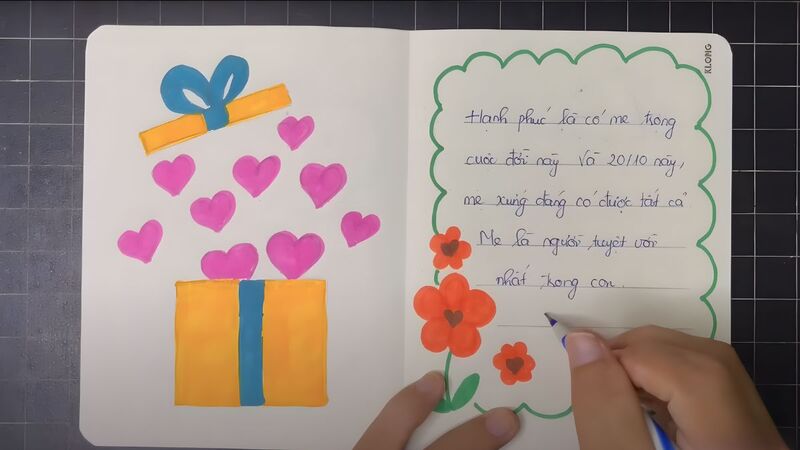 Hạnh phúc là có mẹ trong
cuộc đời này. Và 20/10 này,
mẹ xứng đáng có được tất cả
Mẹ là người tuyệt vời
nhất trong con.
KLONG